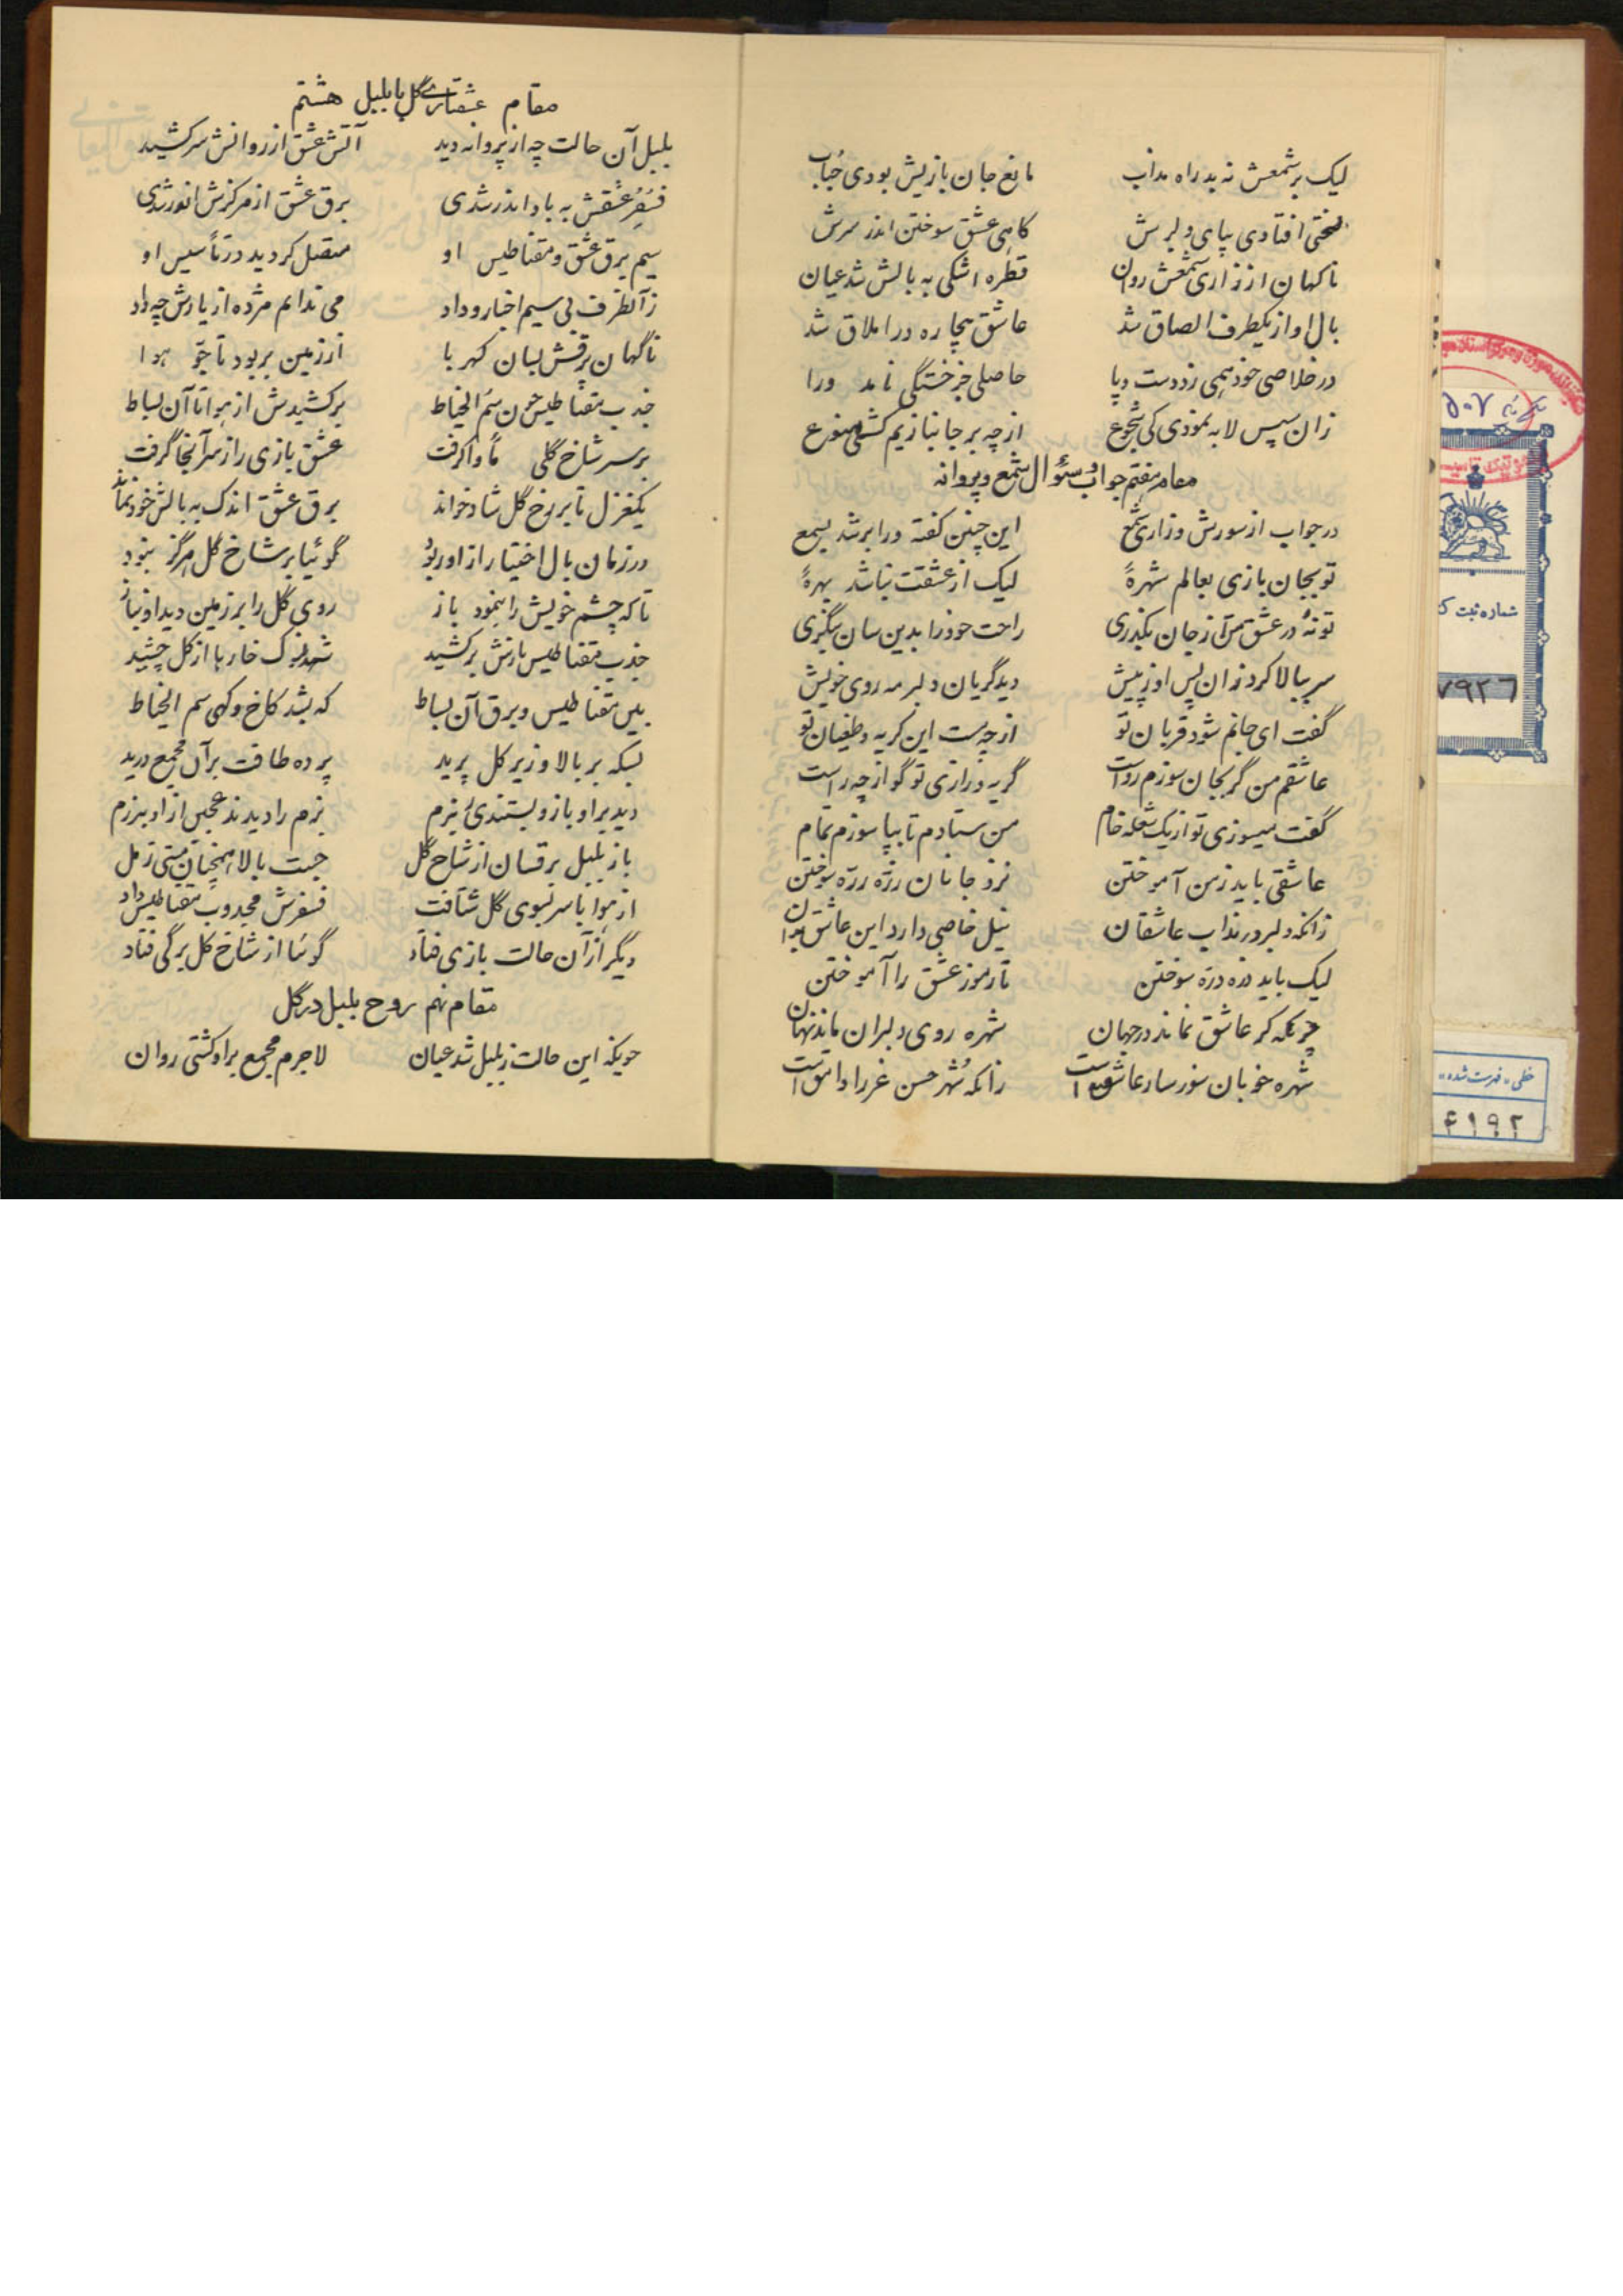 لیک بر شمعش نه بد راه مذاب مانع جان بازیش بودی حجاب
لختی افتادی بپای دلبرش گاهی عشق سوختن اندر سرش
ناگهان از زاری شمعش روان قطره اشکی به بالش شد عیان
بال او از یکطرف الصاق شد عاشق بیچاره در املاق شد
در خلاصی خود همی زد دست و پا حاصلی جز خستگی نامد ورا
زان سپس لابه نمودی کی از چه بر جانبازیم گشتی
مقام هفتم جواب و سئوال شمع و پروانه
در جواب از سوزش و زاری شمع این چنین گفته ورا بر شد بسمع
تو بجان بازی بعالم شهرهٔ لیک از عشقت نباشد بهرهٔ
تو نهٔ در عشق از جان بگذری راحت خود را بدین سان بنگری
سر ببالا کرد زان پس او ز پیش دید گریان دلبر مه روی خویش
گفت ای جانم شود قربان تو از چه است این گریه و طغیان تو
عاشقم من گر بجان سوزم رواست گریه و زاری تو گو از چه راست
گفت میسوزی تو از یک شعله خام من ستادم تا بپا سوزم تمام
عاشقی باید ز من آموختن نزد جانان ذره ذره سوختن
زانکه دلبر در مذاب عاشقان میل خاصی دارد این عاشق بدان
لیک باید ذره ذره سوختن تا رموز عشق را آموختن
چونکه گر عاشق نماند در جهان شهره روی دلبران ماند نهان
شهره خوبان سور سار عاشق است زانکه شهر حسن عذرا وامق است
مقام عشقبازی گل با بلبل هشتم
بلبل آن حالت چه از پروانه دید آتش عشق از روانش سر کشید
عشقش به باد اندر شدی برق عشق از مرکزش انور شدی
سیم برق عشق و مقناطیس او متصل گردید در تأسیس او
زآنطرف بی سیم اخبار و داد می ندانم مژده از یارش چه داد
ناگهان برقش بسان کهربا از زمین بربود تا جو هوا
جذب مقناطیس چون سم الخیاط برکشیدش از هوا تا آن بساط
بر سر شاخ گلی مأوا گرفت عشق بازی را ز سر آنجا گرفت
یکغزل تا بر رخ گل شاد خواند برق عشق اندک به بالش خود نماند
در زمان بال اختیار از او ربود گوئیا بر شاخ گل هرگز نبود
تا که چشم خویش را بنمود باز روی گل را بر زمین دید او نیاز
جذب مقناطیس بازش برکشید شهد نوک خار باز از گل چشید
بین مقناطیس و برق آن بساط که بشد کاخ و گهی سم الخیاط
بسکه بر بالا و زیر گل پرید پرده طاقت بر آن مجمع درید
دید بر او باز و بزم بزم را دیدند عجبی از او برزم
باز بلبل برقسان از شاخ گل جست بالا همچنان مستی ز مل
از هوا با سر بسوی گل شتافت مجذوب مقناطیس داد
دیگر از آن حالت بازی فتاد گوئیا از شاخ گل برگی فتاد
مقام نهم روح بلبل در گل
چونکه این حالت ز بلبل شد عیان لاجرم مجمع بر او گشتی روان
۵۰۷
شماره ثبت
۷۹۲۶
خطی «فهرست شده»
۴۱۹۲